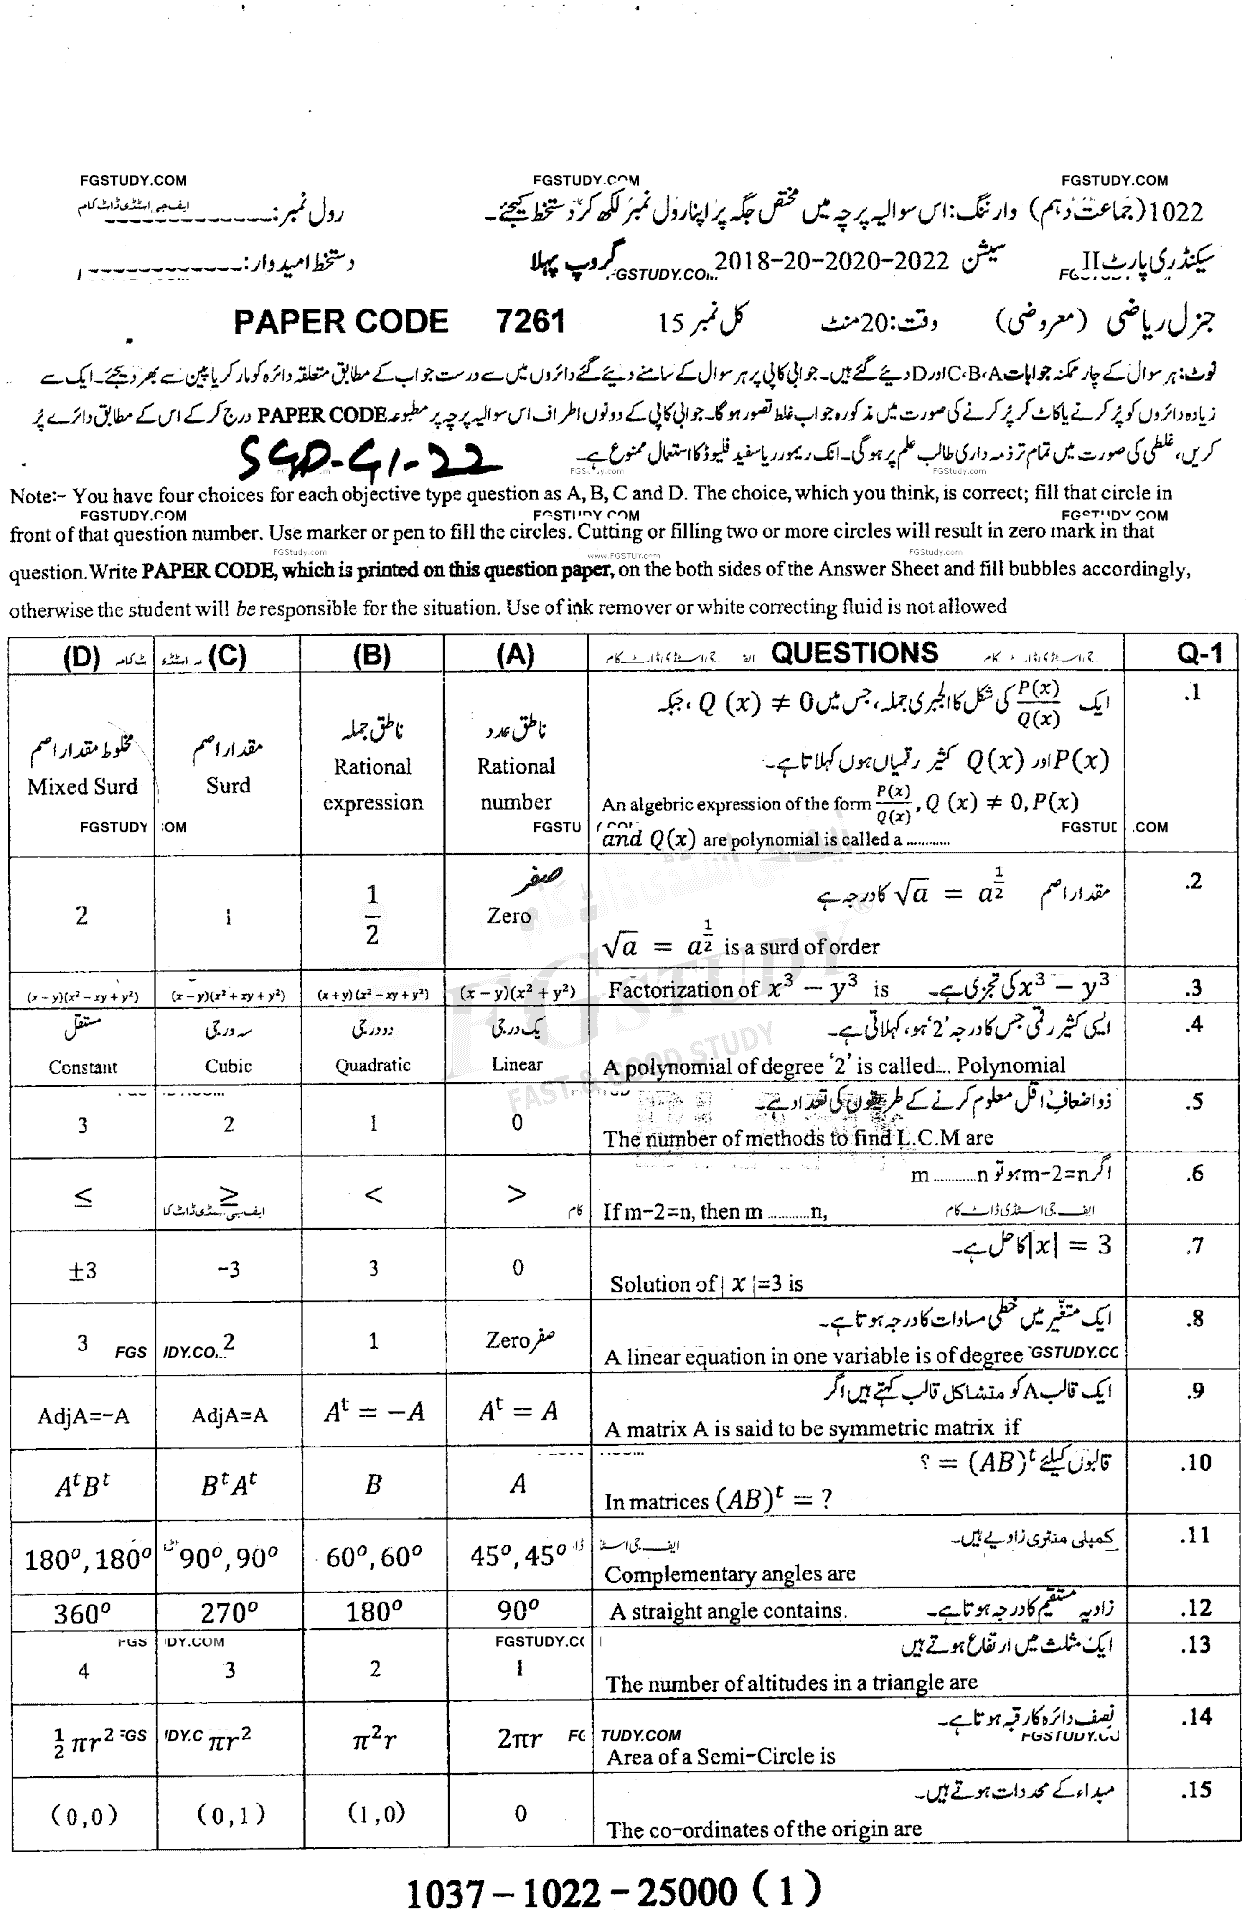 FGSTUDY.COM FGSTUDY.COM FGSTUDY.COM
1022(جماعت دہم) وارننگ: اس سوالیہ پرچہ میں مختص جگہ پر اپنا رول نمبر لکھ کر دستخط کیجئے۔ رول نمبر: ایف جی اسٹڈی ڈاٹ کام
سیکنڈری پارٹ II سیشن 2022-2020-20-2018 گروپ پہلا FGSTUDY.COM دستخط امیدوار:
جنرل ریاضی (معروضی) وقت: 20 منٹ کل نمبر 15 PAPER CODE 7261
نوٹ: ہر سوال کے چار ممکنہ جوابات A،B،C اور D دیئے گئے ہیں۔ جوابی کاپی پر ہر سوال کے سامنے دیئے گئے دائروں میں سے درست جواب کے مطابق متعلقہ دائرہ کو مارکر یا پین سے بھر دیجئے۔ ایک سے
زیادہ دائروں کو پُر کرنے یا کاٹ کر پُر کرنے کی صورت میں مذکورہ جواب غلط تصور ہوگا۔ جوابی کاپی کے دونوں اطراف اس سوالیہ پرچہ پر مطبوعہ PAPER CODE درج کر کے اس کے مطابق دائرے پُر
کریں، غلطی کی صورت میں تمام تر ذمہ داری طالب علم پر ہوگی۔ انک ریموور یا سفید فلیوڈ کا استعمال ممنوع ہے۔ SGD-G1-22
FGStudy.com FGStudy.com
Note:- You have four choices for each objective type question as A, B, C and D. The choice, which you think, is correct; fill that circle in
FGSTUDY.COM FGSTUDY.COM FGSTUDY.COM
front of that question number. Use marker or pen to fill the circles. Cutting or filling two or more circles will result in zero mark in that
FGStudy.com FGStudy.com
question. Write PAPER CODE, which is printed on this question paper, on the both sides of the Answer Sheet and fill bubbles accordingly,
otherwise the student will be responsible for the situation. Use of ink remover or white correcting fluid is not allowed
(D) (C) (B) (A) QUESTIONS Q-1
ایک P(x)/Q(x) کی شکل کا الجبری جملہ، جس میں Q (x) ≠ 0، جبکہ .1
P(x) اور Q(x) کثیر رقمیاں ہوں کہلاتا ہے۔
مخلوط مقدار اصم مقدار اصم ناطق جملہ ناطق عدد
Mixed Surd Surd Rational expression Rational number An algebric expression of the form P(x)/Q(x), Q (x) ≠ 0, P(x)
and Q(x) are polynomial is called a ...........
FGSTUDY.COM FGSTUDY.COM
مقدار اصم √a = a^(1/2) کا درجہ ہے .2
2 1 1/2 صفر Zero √a = a^(1/2) is a surd of order
(x − y)(x² − xy + y²) (x − y)(x² + xy + y²) (x + y)(x² − xy + y²) (x − y)(x² + y²) Factorization of x³ − y³ is x³ − y³ کی تجزی ہے۔ .3
مستقل سہ درجی دو درجی یک درجی ایسی کثیر رقمی جس کا درجہ '2' ہو، کہلاتی ہے۔ .4
Constant Cubic Quadratic Linear A polynomial of degree '2' is called.... Polynomial
ذو اضعاف اقل معلوم کرنے کے طریقوں کی تعداد ہے۔ .5
3 2 1 0 The number of methods to find L.C.M are
اگر m-2=n ہو تو m ..........n .6
≤ ≥ < > If m-2=n, then m ...........n,
ایف جی اسٹڈی ڈاٹ کام
|x| = 3 کا حل ہے۔ .7
±3 −3 3 0 Solution of | x |=3 is
ایک متغیر میں خطی مساوات کا درجہ ہوتا ہے۔ .8
3 2 1 صفر Zero A linear equation in one variable is of degree
ایک قالب A کو متشاکل قالب کہتے ہیں اگر .9
AdjA=-A AdjA=A Aᵗ = −A Aᵗ = A A matrix A is said to be symmetric matrix if
قالبوں کیلئے (AB)ᵗ = ؟ .10
AᵗBᵗ BᵗAᵗ B A In matrices (AB)ᵗ = ?
کمپلی منٹری زاویے ہیں۔ .11
180º, 180º 90º, 90º 60º, 60º 45º, 45º Complementary angles are
360º 270º 180º 90º A straight angle contains. زاویہ مستقیم کا درجہ ہوتا ہے۔ .12
FGSTUDY.COM
ایک مثلث میں ارتفاع ہوتے ہیں .13
4 3 2 1 The number of altitudes in a triangle are
نصف دائرہ کا رقبہ ہوتا ہے۔ .14
½ πr² πr² π²r 2πr Area of a Semi-Circle is
مبداء کے محددات ہوتے ہیں۔ .15
(0,0) (0,1) (1,0) 0 The co-ordinates of the origin are
FGSTUDY
FAST & GOOD STUDY
1037-1022-25000 (1)